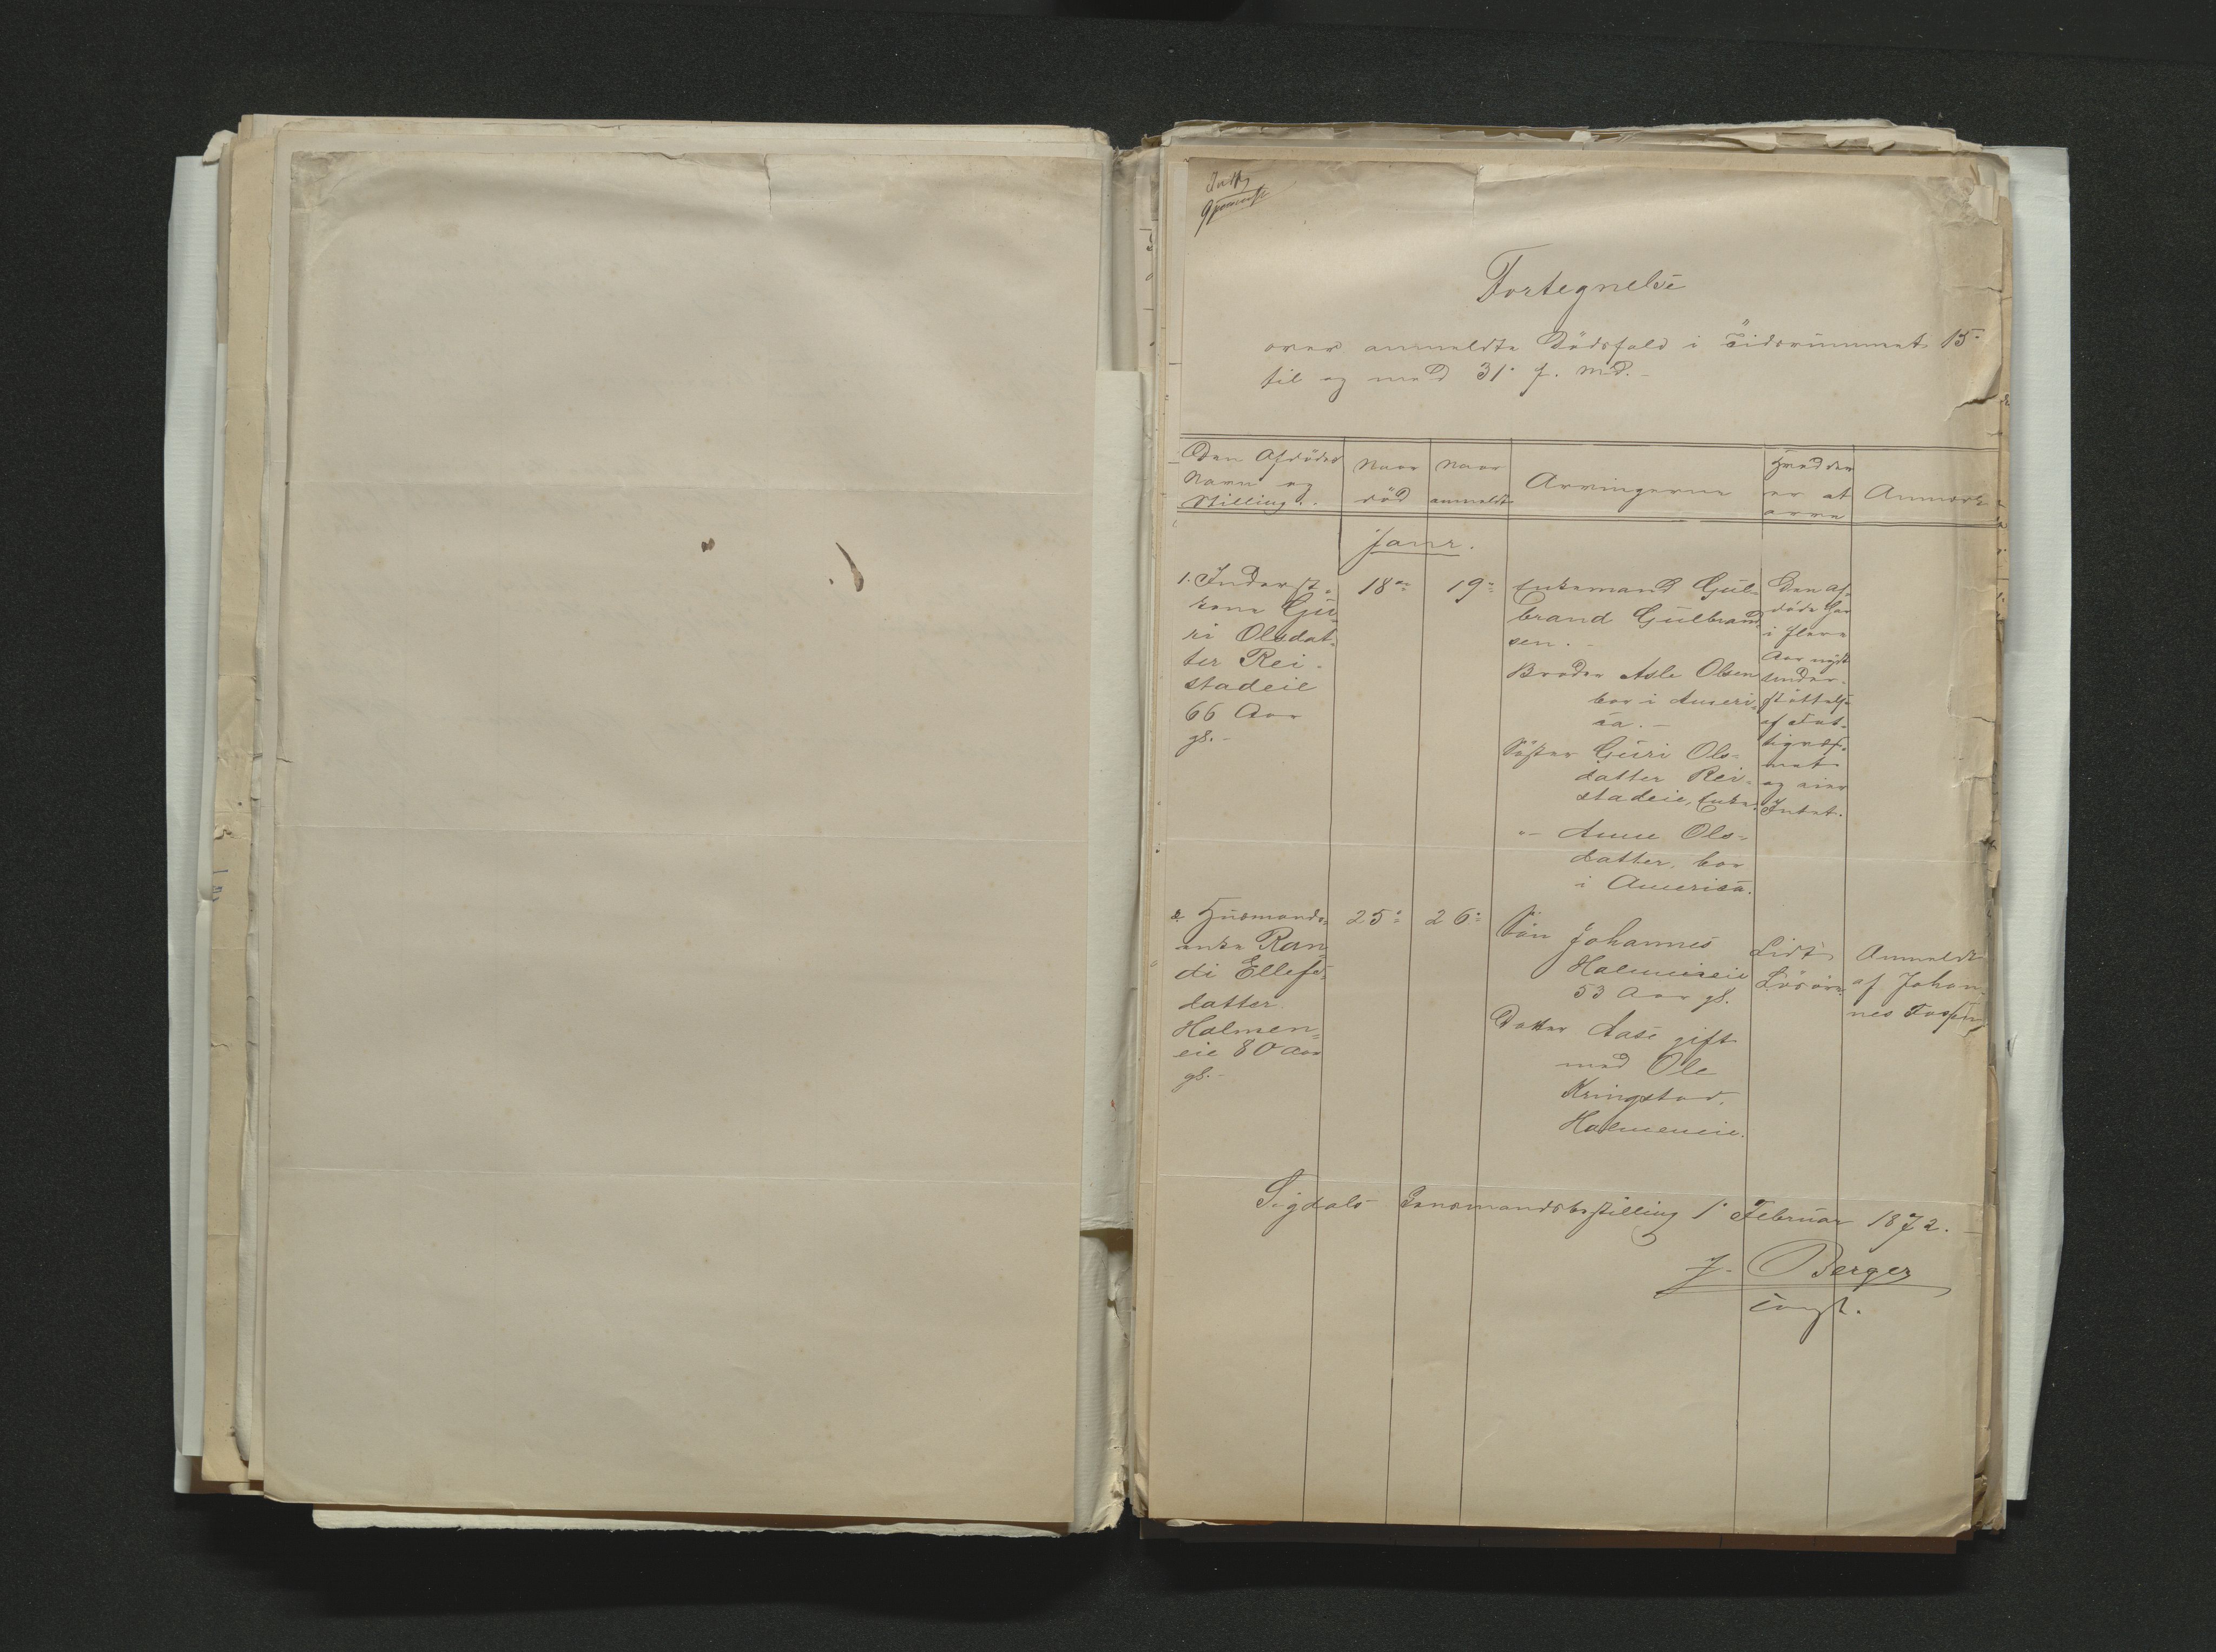 Fortegnelse
over anmeldte Dödsfald i Tidsrummet 15.
til og med 31. f. Md. -
Den Afdödes
Navn og
Stilling.
Naar
död
Naar
anmeldt
Arvingerne
Hvad der
er at
arve
Anmærk
Janr.
1. Inderst-
kone Gu-
ri Olsdat-
ter Rei-
stadeie
66 Aar
gl. -
18de
19.
Enkemand Gul-
brand Gulbrand-
sen. -
Broder Asle Olsen
bor i Ameri-
ca. -
Söster Guri Ols-
datter Rei-
stadeie, Enke.
"- Anne Ols-
datter, bor
i America.
Den Af-
döde har
i flere
Aar nydt
Under-
støttelse
af Fat-
tigvæs-
net
og eier
Intet.
2. Husmands-
enke Ran-
di Ellefs-
datter
Halmen-
eie 80 Aar
gl. -
25.
26.
Sön Johannes
Halmeneie
53 Aar gl.
Datter Aase gift
med Ole
Kringstad,
Halmeneie.
Lidt
Lösöre.
Anmeldt
af Johan-
nes
Sigdals Lensmandsbestilling 1. Februar 1872. -
J. Berger
const.